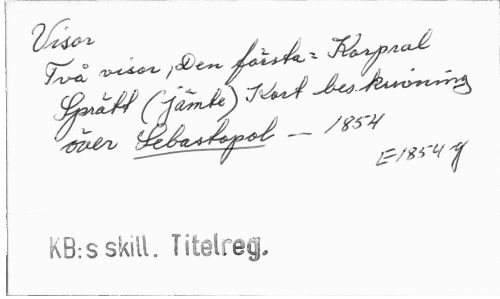 Visor
Två visor, Den första: Korpral
Sprätt (jämte) Kort beskrivning
över Sebastopol — 1854
E 1854 g
KB:s skill. Titelreg.